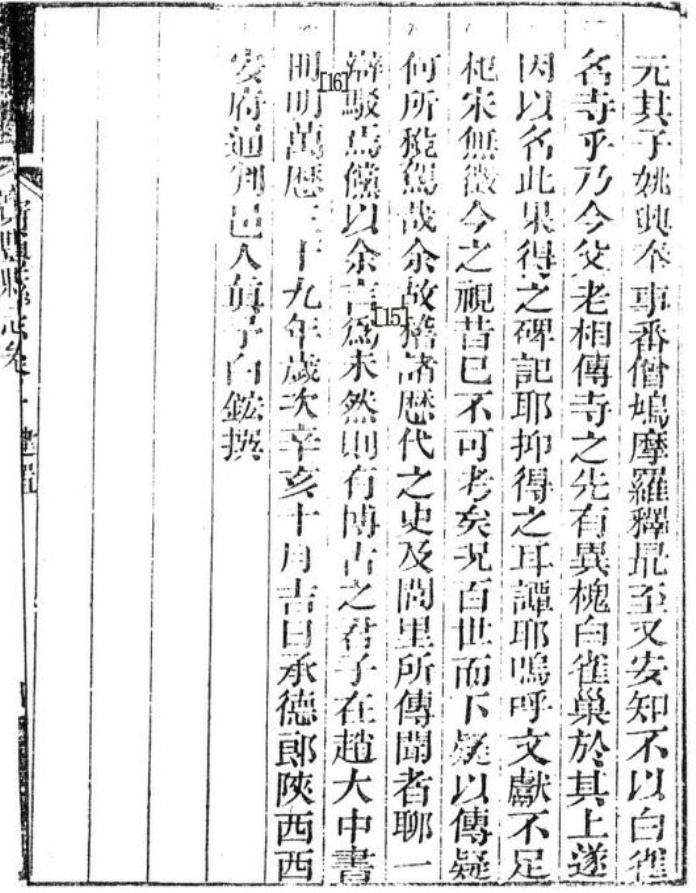 元其子姚興奉事番僧鳩摩羅釋最至又安知不以白雀
名寺乎乃今父老相傳寺之先有異槐白雀巢於其上遂
因以名此果得之碑記耶抑得之耳譚耶嗚呼文獻不足
杞宋無徵今之視昔已不可考矣况百世而下疑以傳疑
何所稅駕哉余故[15]稽諸歷代之史及閭里所傳聞者聊一
辯駁焉儻以余言為未然則有博古之君子在趙大中書
[16]明萬歷三十九年歲次辛亥十月吉日承德郎陝西西
安府通判邑人子白鋐撰